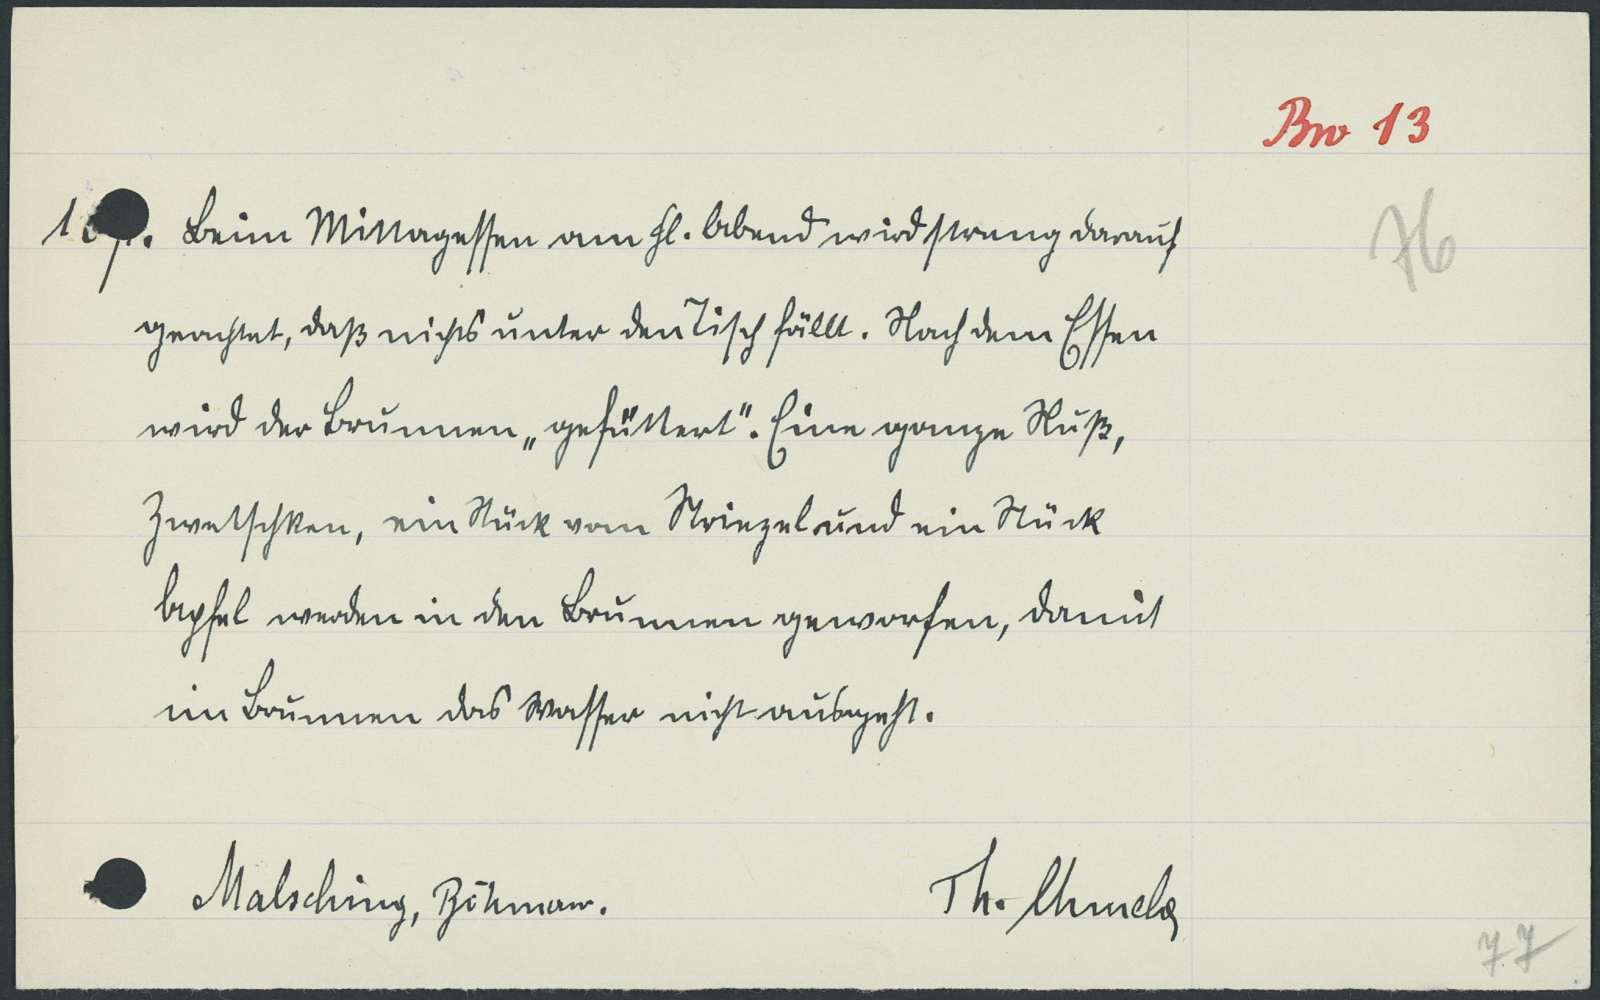 Bw 13
76
Beim Mittagessen am hl. Abend wird streng darauf
geachtet, daß nichts unter den Tisch fällt. Nach dem Essen
wird der Brunnen „gefüttert". Eine ganze Nuß,
Zwetschken, ein Stück vom Striezel und ein Stück
Apfel werden in den Brunnen geworfen, damit
im Brunnen das Wasser nicht ausgeht.
Malsching, Böhmerw.
Th. Chmela
77